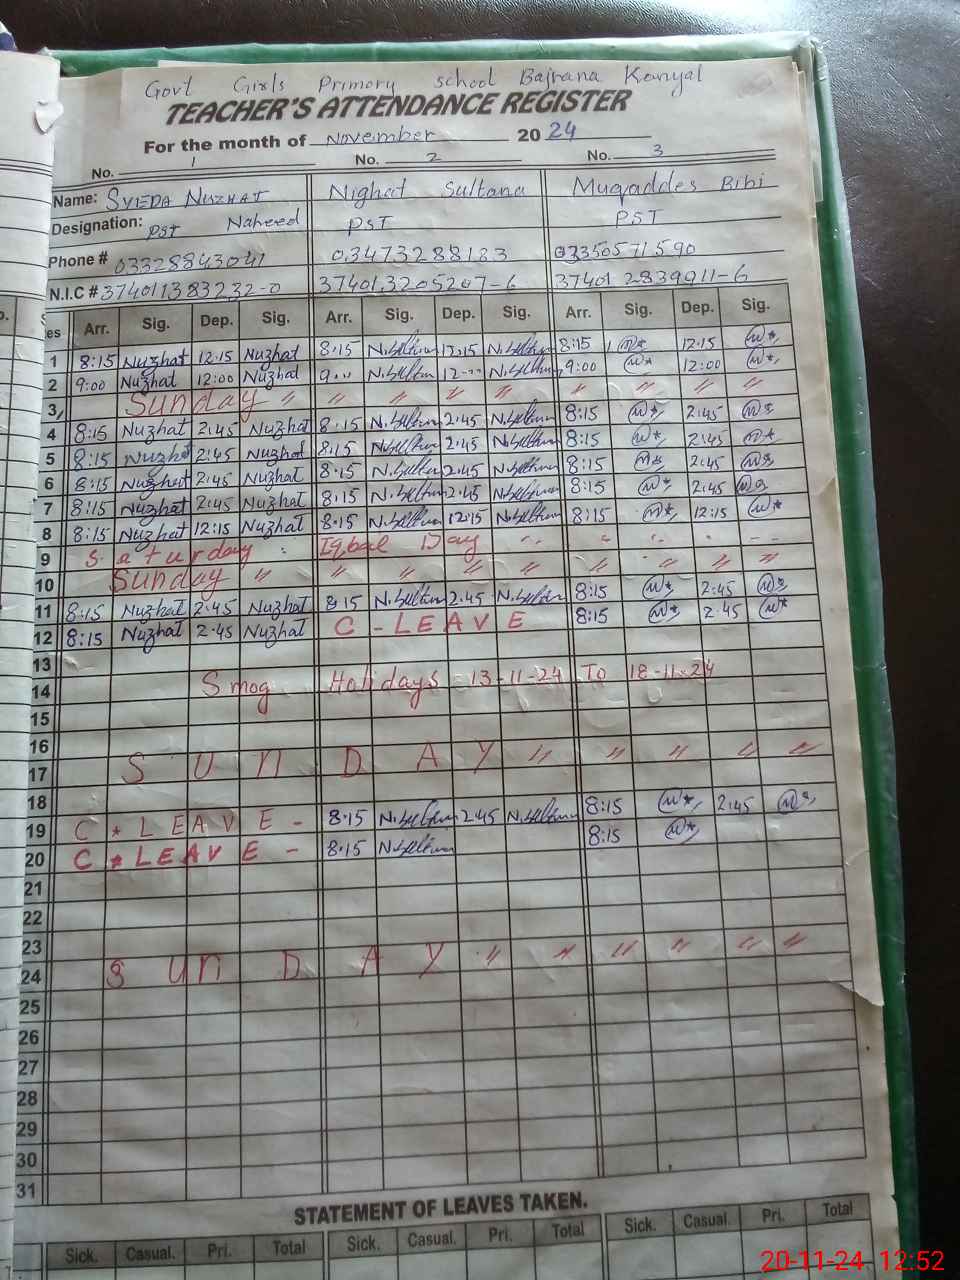 Govt Girls Primary school Bajrana Kanyal
TEACHER'S ATTENDANCE REGISTER
For the month of November 2024
No. 1 No. 2 No. 3
Name: SYIEDA NUZHAT Nighat Sultana Muqaddes Bibi
Designation: PST Naheed PST PST
Phone # 03328843041 03473288183 03350571590
N.I.C # 374011383232-0 374013205207-6 37401 2839911-6
es Arr. Sig. Dep. Sig. Arr. Sig. Dep. Sig. Arr. Sig. Dep. Sig.
1 8:15 Nuzhat 12:15 Nuzhat 8:15 N.Sultan 12:15 N.Sultan 8:15 12:15
2 9:00 Nuzhat 12:00 Nuzhat 9.. N.Sultan 12.. N.Sultan 9:00 12:00
3 Sunday " " " " " " " " "
4 8:15 Nuzhat 2:45 Nuzhat 8:15 N.Sultan 2:45 N.Sultan 8:15 2:45
5 8:15 Nuzhat 2:45 Nuzhat 8:15 N.Sultan 2:45 N.Sultan 8:15 2:45
6 8:15 Nuzhat 2:45 Nuzhat 8:15 N.Sultan 2:45 N.Sultan 8:15 2:45
7 8:15 Nuzhat 2:45 Nuzhat 8:15 N.Sultan 2:45 N.Sultan 8:15 2:45
8 8:15 Nuzhat 12:15 Nuzhat 8:15 N.Sultan 12:15 N.Sultan 8:15 12:15
9 Saturday Iqbal Day
10 Sunday " " " " " " " " "
11 8:15 Nuzhat 2:45 Nuzhat 8:15 N.Sultan 2:45 N.Sultan 8:15 2:45
12 8:15 Nuzhat 2:45 Nuzhat C - LEAVE 8:15 2:45
13
14 Smog Holidays 13-11-24 To 18-11-24
15
16
17 SUNDAY " " " " "
18
19 C * LEAVE - 8:15 N.Sultan 2:45 N.Sultan 8:15 2:45
20 C * LEAVE - 8:15 N.Sultan 8:15
21
22
23
24 SUNDAY " " " " " "
25
26
27
28
29
30
31
STATEMENT OF LEAVES TAKEN.
Sick. Casual. Pri. Total Sick. Casual. Pri. Total Sick. Casual. Pri. Total
20-11-24 12:52